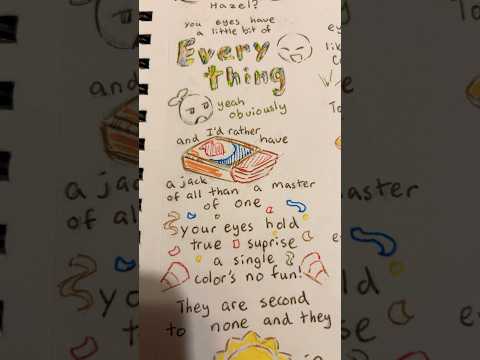 Hazel?
you eyes have
a little bit of
Every
thing
yeah
obviously
and I'd rather
have
a jack
of all than a master
of one
your eyes hold
true suprise
a single
color's no fun!
They are second
to none and they